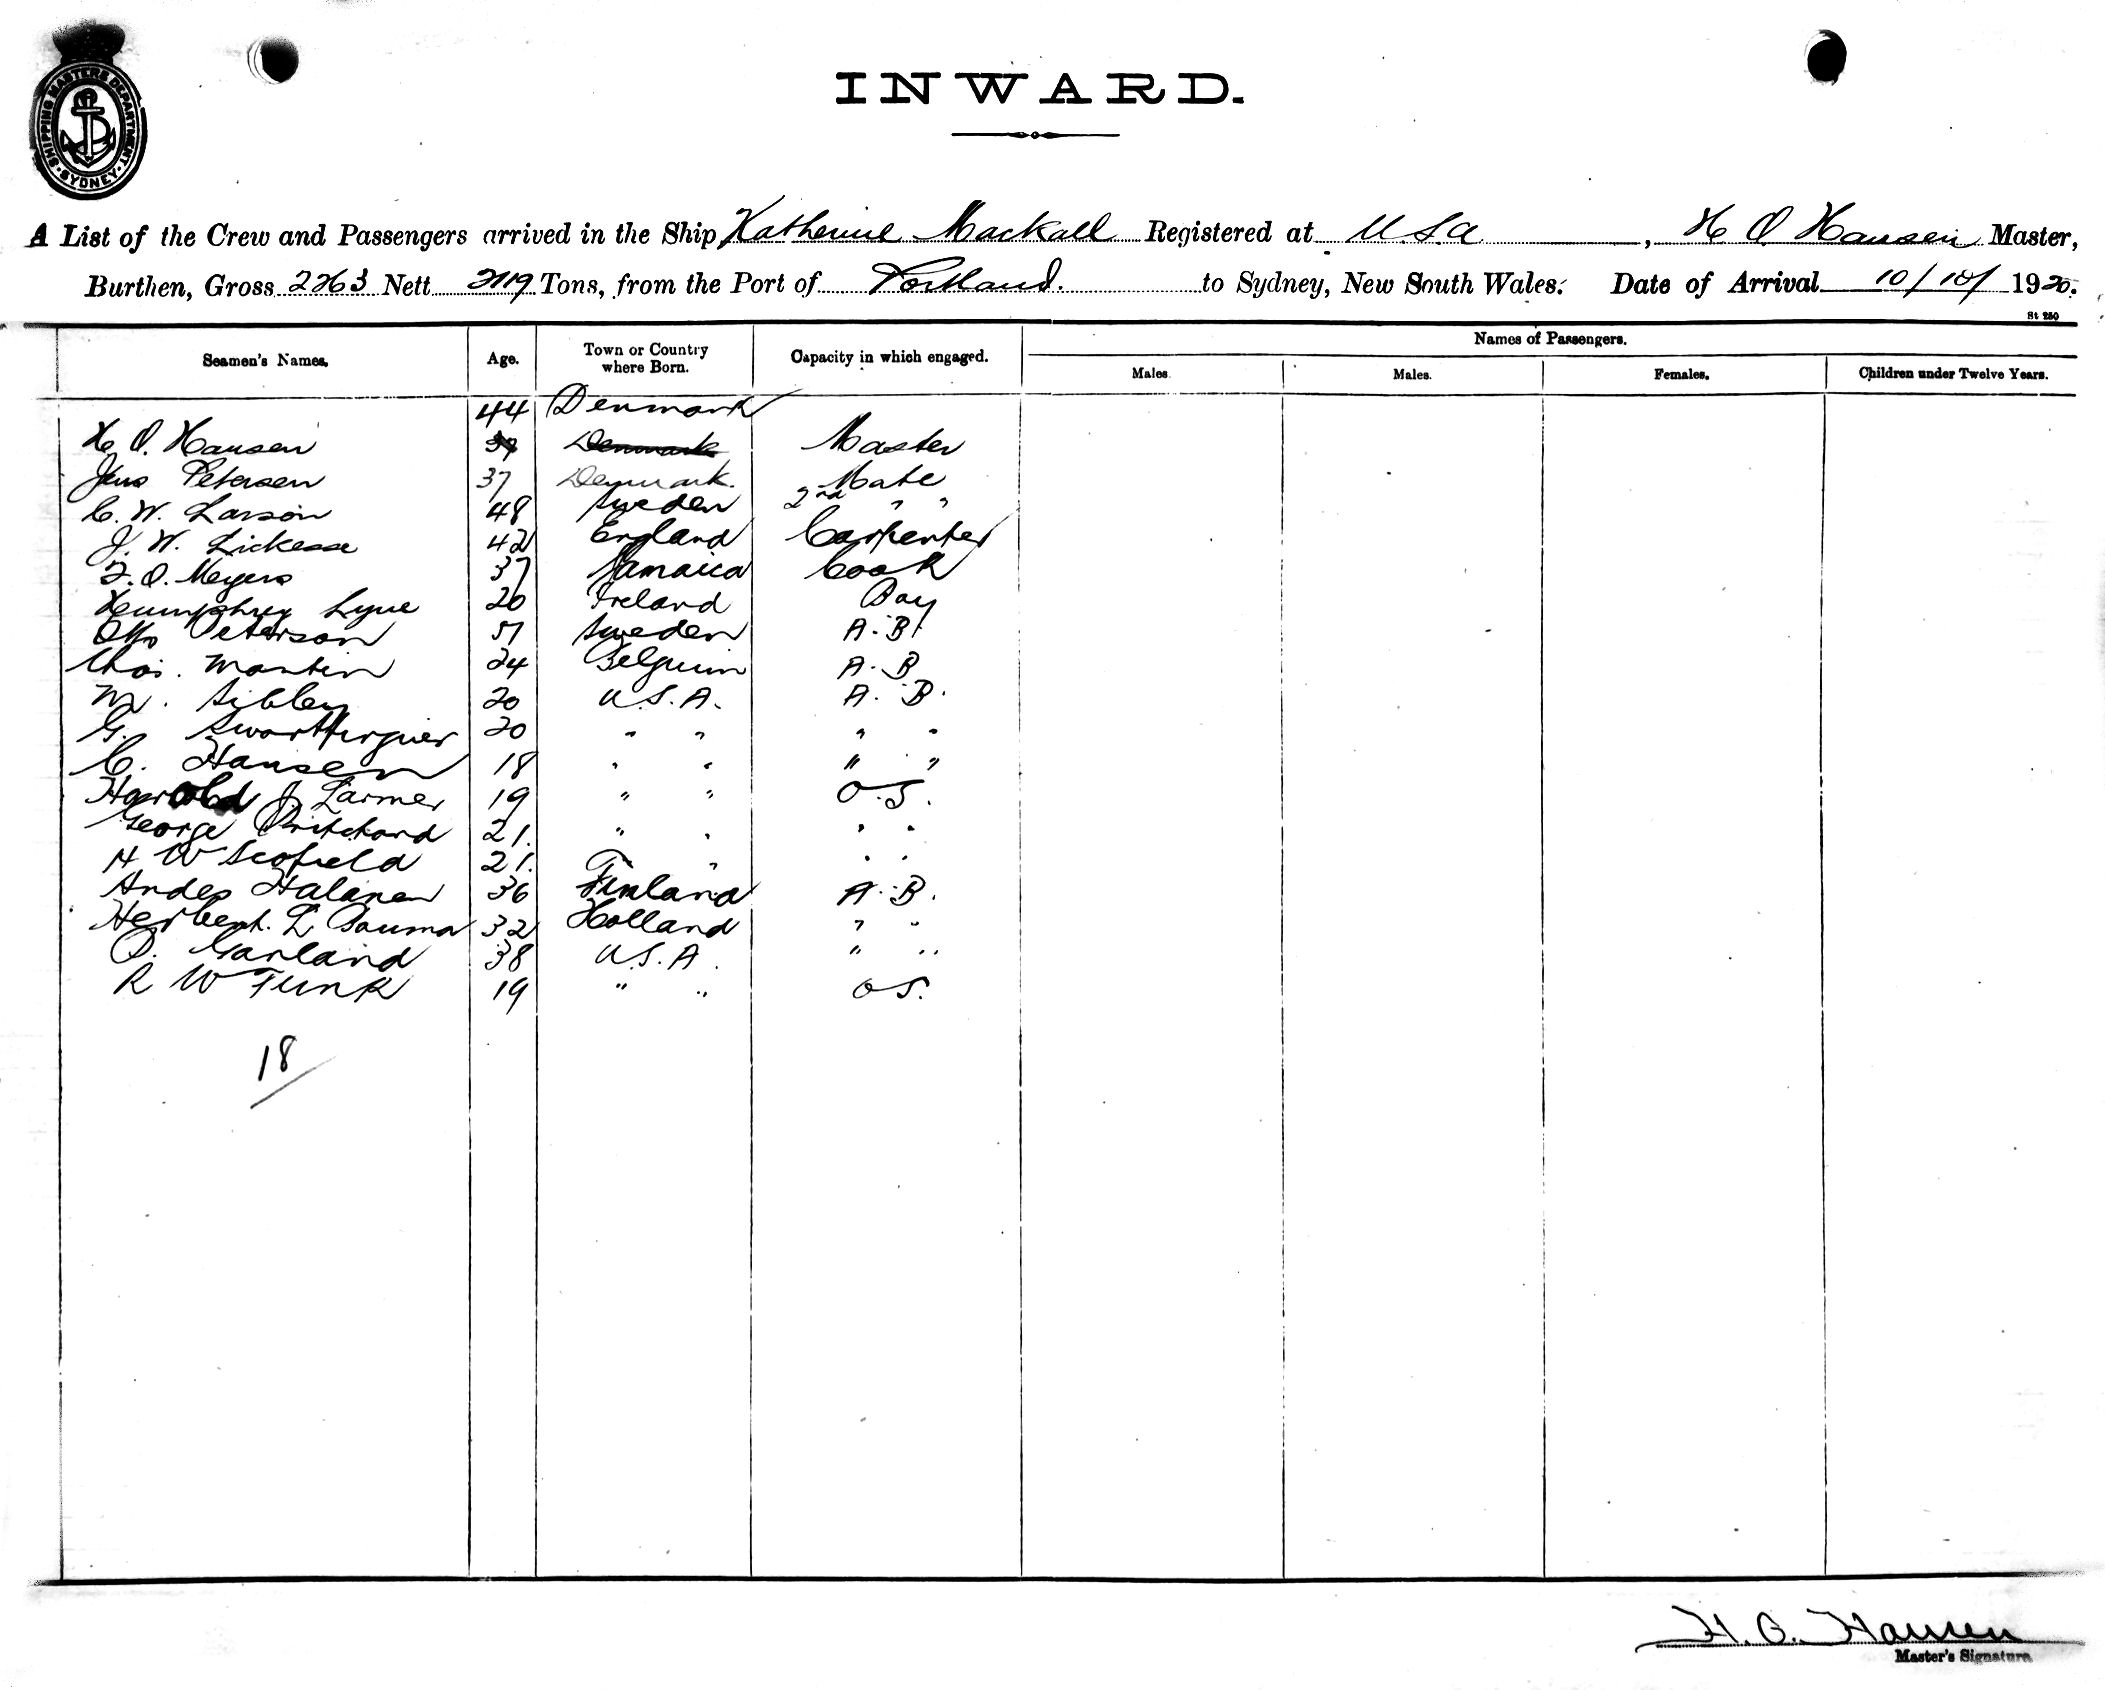 SHIPPING MASTERS DEPARTMENT SYDNEY
INWARD.
A List of the Crew and Passengers arrived in the Ship Katherine Mackall Registered at U.S.A , H O Hansen Master,
Burthen, Gross 2263 Nett 2119 Tons, from the Port of Portland. to Sydney, New South Wales. Date of Arrival 10/10/1920.
St 250
Seamen's Names. Age. Town or Country where Born. Capacity in which engaged. Names of Passengers.
Males. Males. Females. Children under Twelve Years.
44 Denmark
H O. Hansen Denmark Master
Jens Petersen 37 Denmark. Mate
C. W. Larson 48 Sweden 2nd " "
J. W. 42 England Carpenter
F. O. Meyers 37 Jamaica Cook
Humphrey Lyne 20 Ireland Boy
Otto Peterson 51 Sweden A.B.
Chas. Martin 24 Belguim A.B
M. Sibley 20 U.S.A. A.B.
G. 20 " " " "
C. Hansen 18 " " " "
Harold J. Larmer 19 " " O.S.
George Pritchard 21. " " " "
H W Scofield 21. " " "
Andes Halanen 36 Finland A.B.
Herbert. L Bouma 32 Holland " "
O. Garland 38 U.S.A. " "
R W Funk 19 " " O S.
18
H. O. Hansen
Master's Signature